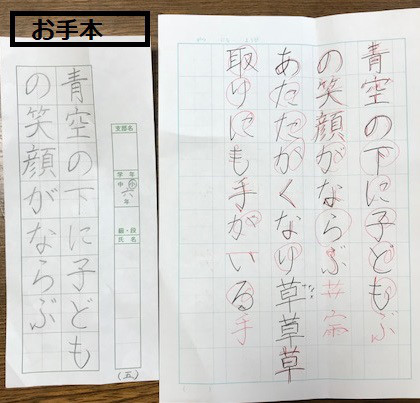 お手本
青空の下に子ども
の笑顔がならぶ
支部名
学年
中小六年
級・段
氏名
(五)
青空の下に子どもぶ
の笑顔がならぶ
あたたがくなり草草草
取りにも手がいる手